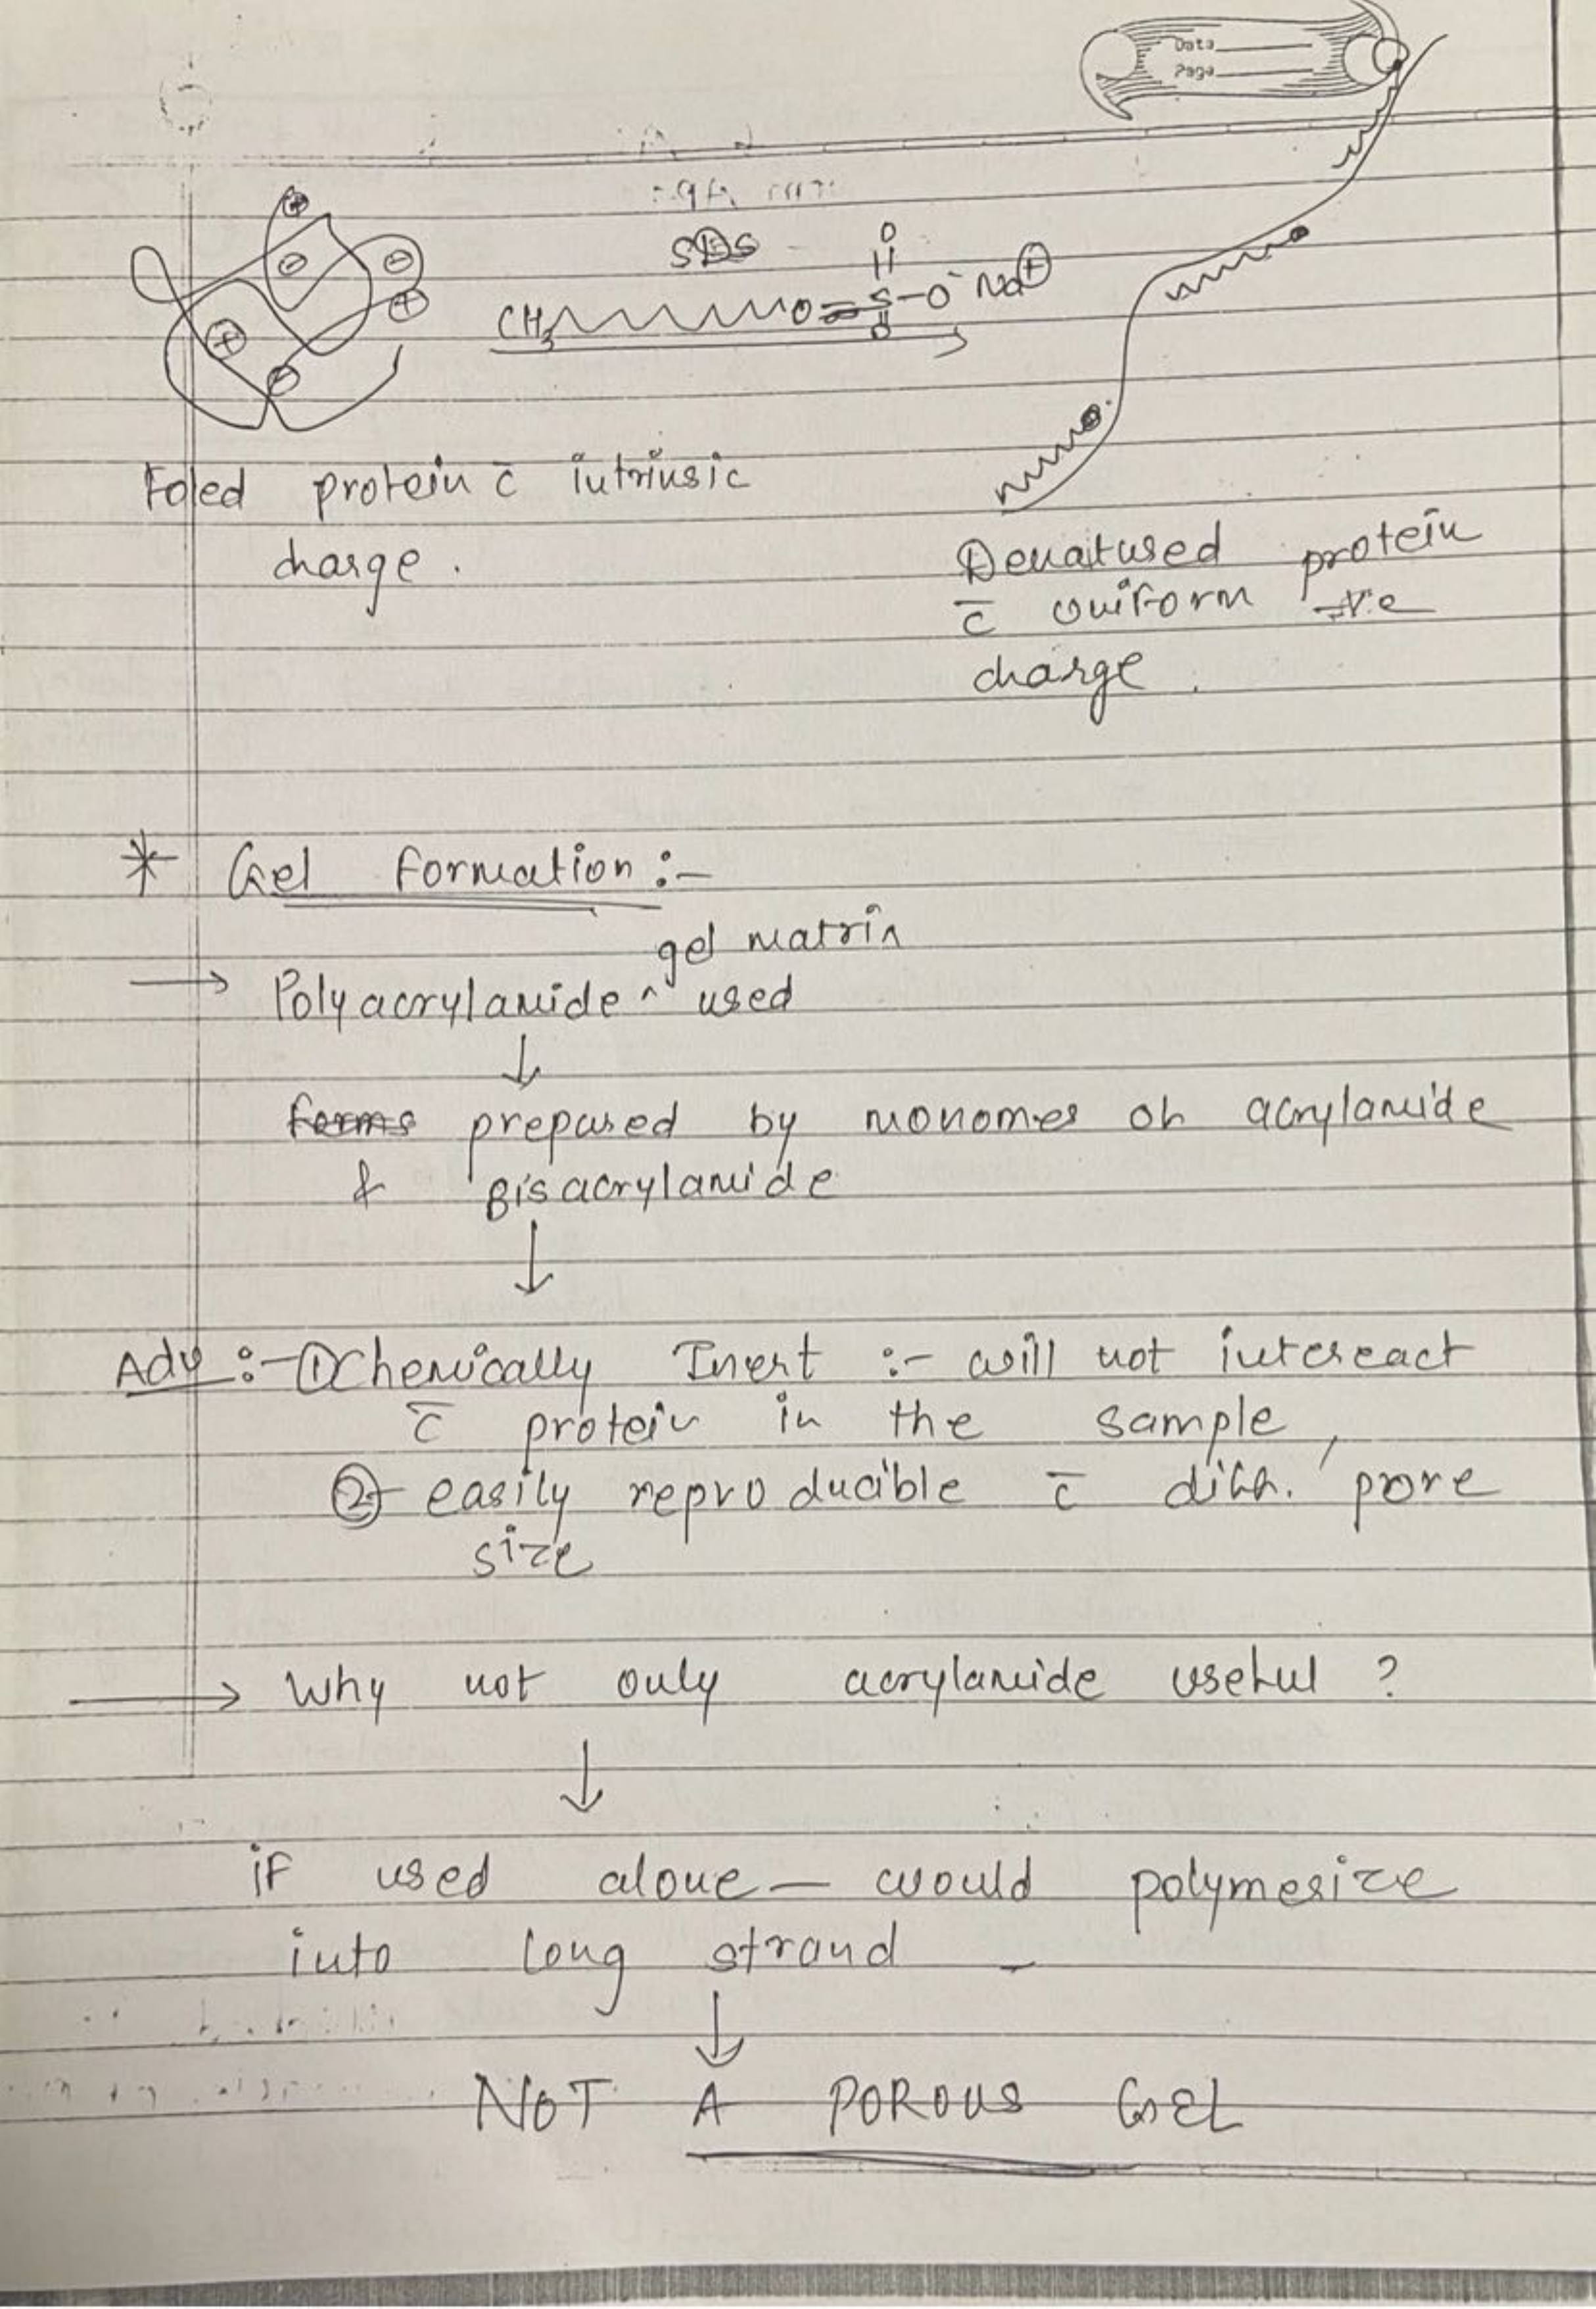 Data
Page
SDS
O
CH3 O S-O⁻ Na⊕
O
⊕
⊖ ⊖
⊕
⊕
⊖
Foled protein c̄ intrinsic
charge.
Denatused protein
c̄ uniform -ve
charge.
* Gel Formation :-
gel matrix
→ Polyacrylamide ^ used
↓
forms prepared by monomer of acrylamide
& Bisacrylamide
↓
Adv :- ① Chemically Inert :- will not intereact
c̄ protein in the sample,
② easily reproducible c̄ diff. pore
size
→ Why not only acrylamide useful ?
↓
if used alone — would polymerize
into long strand -
↓
NOT A POROUS GEL